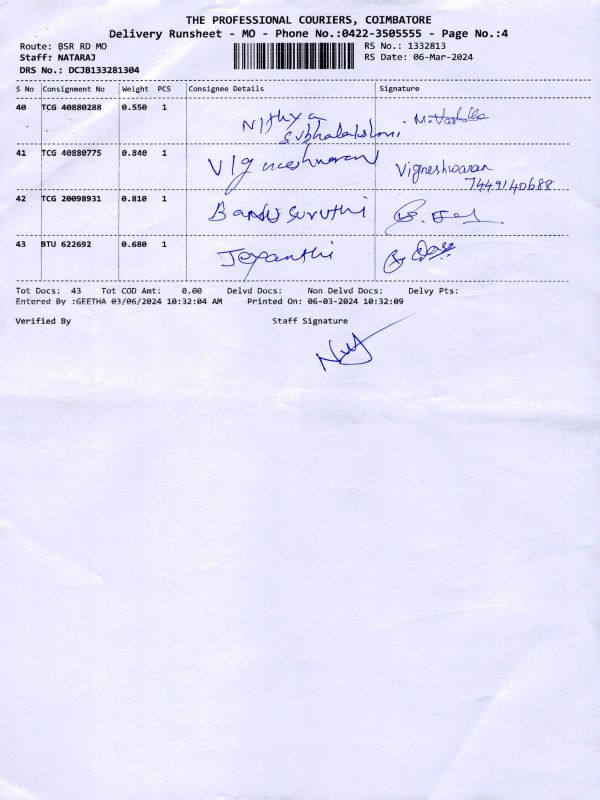 THE PROFESSIONAL COURIERS, COIMBATORE
Delivery Runsheet - MO - Phone No.:0422-3505555 - Page No.:4
Route: BSR RD MO RS No.: 1332813
Staff: NATARAJ RS Date: 06-Mar-2024
DRS No.: DCJB133281304
S No Consignment No Weight PCS Consignee Details Signature
40 TCG 40880288 0.550 1 Nithya
Subhalakshmi
41 TCG 40880775 0.840 1 Vigneshwaran Vigneshwaran
7449140688
42 TCG 20098931 0.810 1 Suruthi
43 BTU 622692 0.680 1 Jeyanthi
Tot Docs: 43 Tot COD Amt: 0.00 Delvd Docs: Non Delvd Docs: Delvy Pts:
Entered By :GEETHA 03/06/2024 10:32:04 AM Printed On: 06-03-2024 10:32:09
Verified By Staff Signature